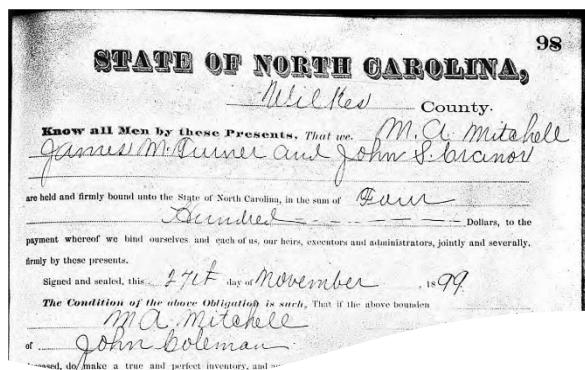 98
STATE OF NORTH CAROLINA,
Wilkes County.
Know all Men by these Presents, That we, M. A. Mitchell
James M. Turner and John S. Cranor
are held and firmly bound unto the State of North Carolina, in the sum of Four
Hundred - - - - - Dollars, to the
payment whereof we bind ourselves and each of us, our heirs, executors and administrators, jointly and severally,
firmly by these presents.
Signed and sealed, this 27th day of November, 1899
The Condition of the above Obligation is such, That if the above bounden
M A Mitchell
of John Coleman
deceased, do make a true and perfect inventory, and